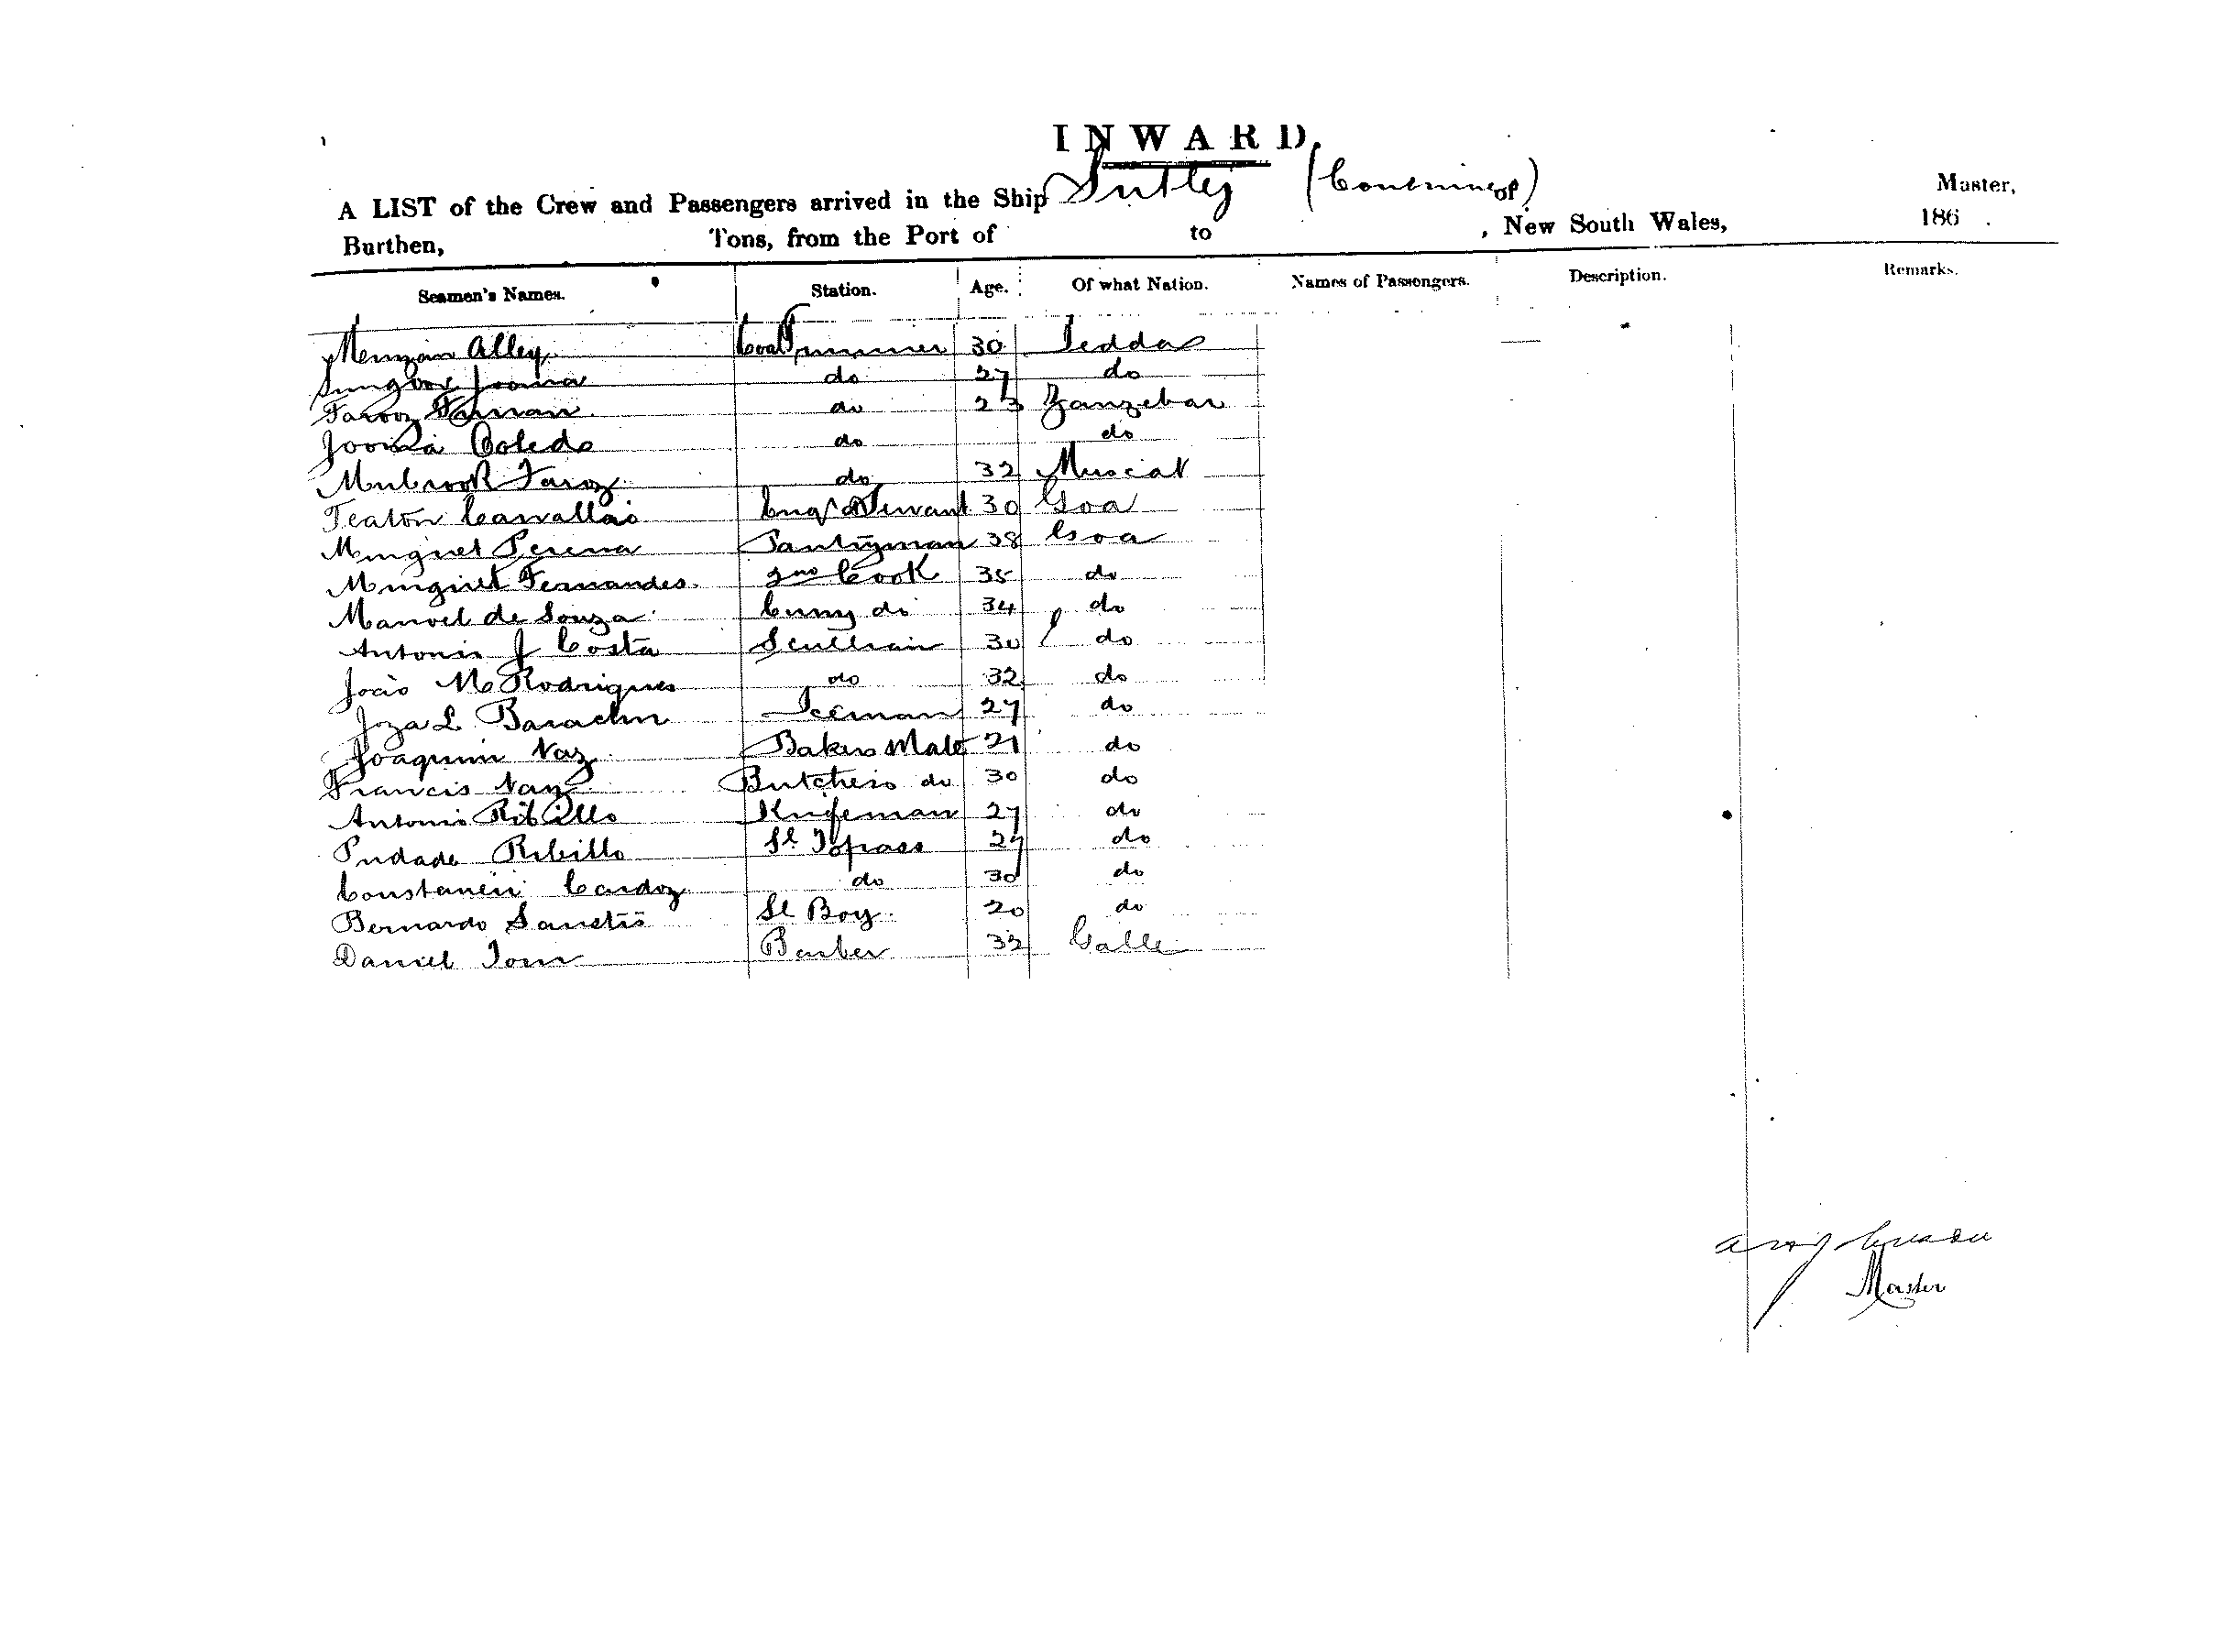 INWARD.
A LIST of the Crew and Passengers arrived in the Ship Sutlej (Continued) of Master,
Burthen, Tons, from the Port of to , New South Wales, 186 .
Seamen's Names. Station. Age. Of what Nation. Names of Passengers. Description. Remarks.
Alley Coal Trimmer 30 Jedda
Jooma do 27 do
Farooz do 23 Zanzebar
Jooma do do
Mubrook Faroz do 32 Muscat
Cawallao Servant 30 Goa
Minguel Pereira Pantryman 38 Goa
Minguel Fernandes 2nd Cook 35 do
Manoel de Souza Curry do 34 do
Antonio J Costa Scullion 30 do
Joao M Rodrigues do 32 do
Joza L Iceman 27 do
Joaquim Vaz Bakers Mate 21 do
Francis Vaz Butchers do 30 do
Antonio Ribello Knifeman 27 do
Ribello Topass do
Cardoz do 30 do
Bernardo Boy 20 do
Daniel Barber 32 Galle
Master